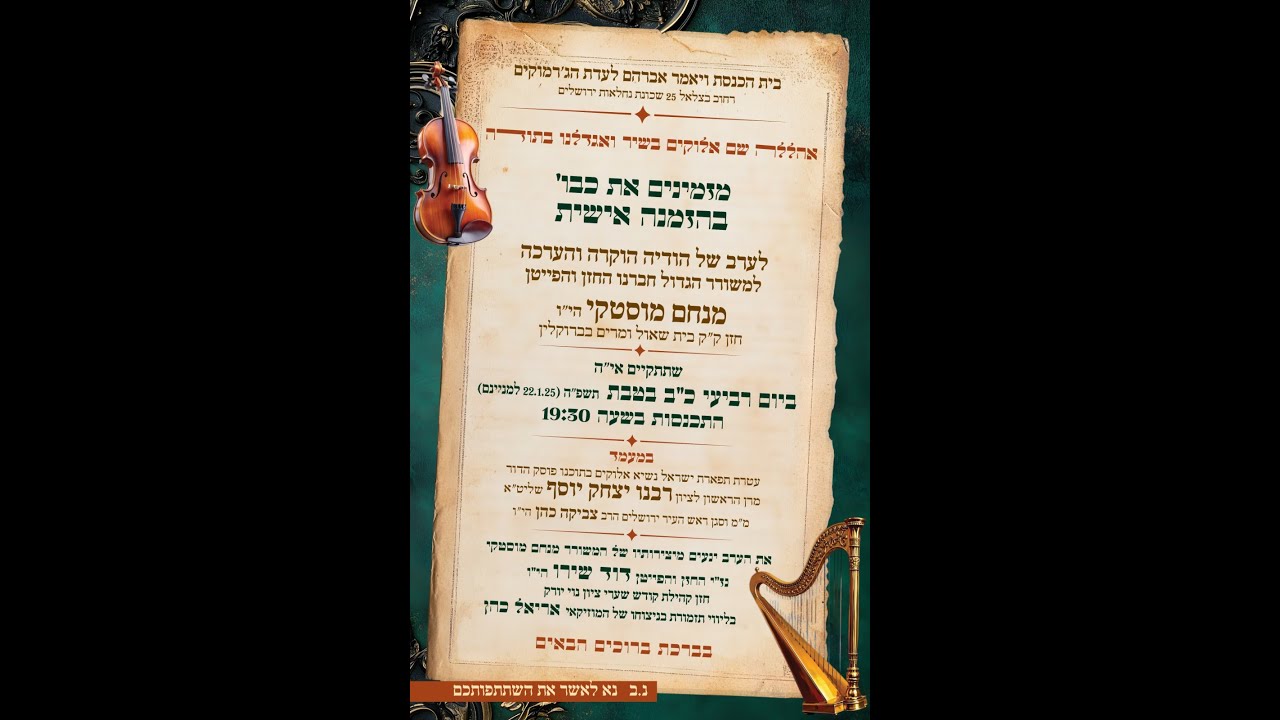 בית הכנסת ויאמר אברהם לעדת הג'רמוקים
רחוב בצלאל 25 שכונת נחלאות ירושלים
אהללה שם אלוקים בשיר ואגדלנו בתודה
מזמינים את כבו'
בהזמנה אישית
לערב של הודיה הוקרה והערכה
למשורר הגדול חברנו החזן והפייטן
מנחם מוסטקי הי"ו
חזן ק"ק בית שאול ומרים בברוקלין
שתתקיים אי"ה
ביום רביעי כ"ב בטבת תשפ"ה (22.1.25 למניינם)
התכנסות בשעה 19:30
במעמד
עטרת תפארת ישראל נשיא אלוקים בתוכנו פוסק הדור
מרן הראשון לציון רבנו יצחק יוסף שליט"א
מ"מ וסגן ראש העיר ירושלים הרב צביקה כהן הי"ו
את הערב ינעים מיצירותיו של המשורר מנחם מוסטקי
נז"י החזן והפייטן דוד שירו הי"ו
חזן קהילת קודש שערי ציון נוי יורק
בליווי תזמורת בניצוחו של המוזיקאי אריאל כהן
בברכת ברוכים הבאים
נ.ב נא לאשר את השתתפותכם